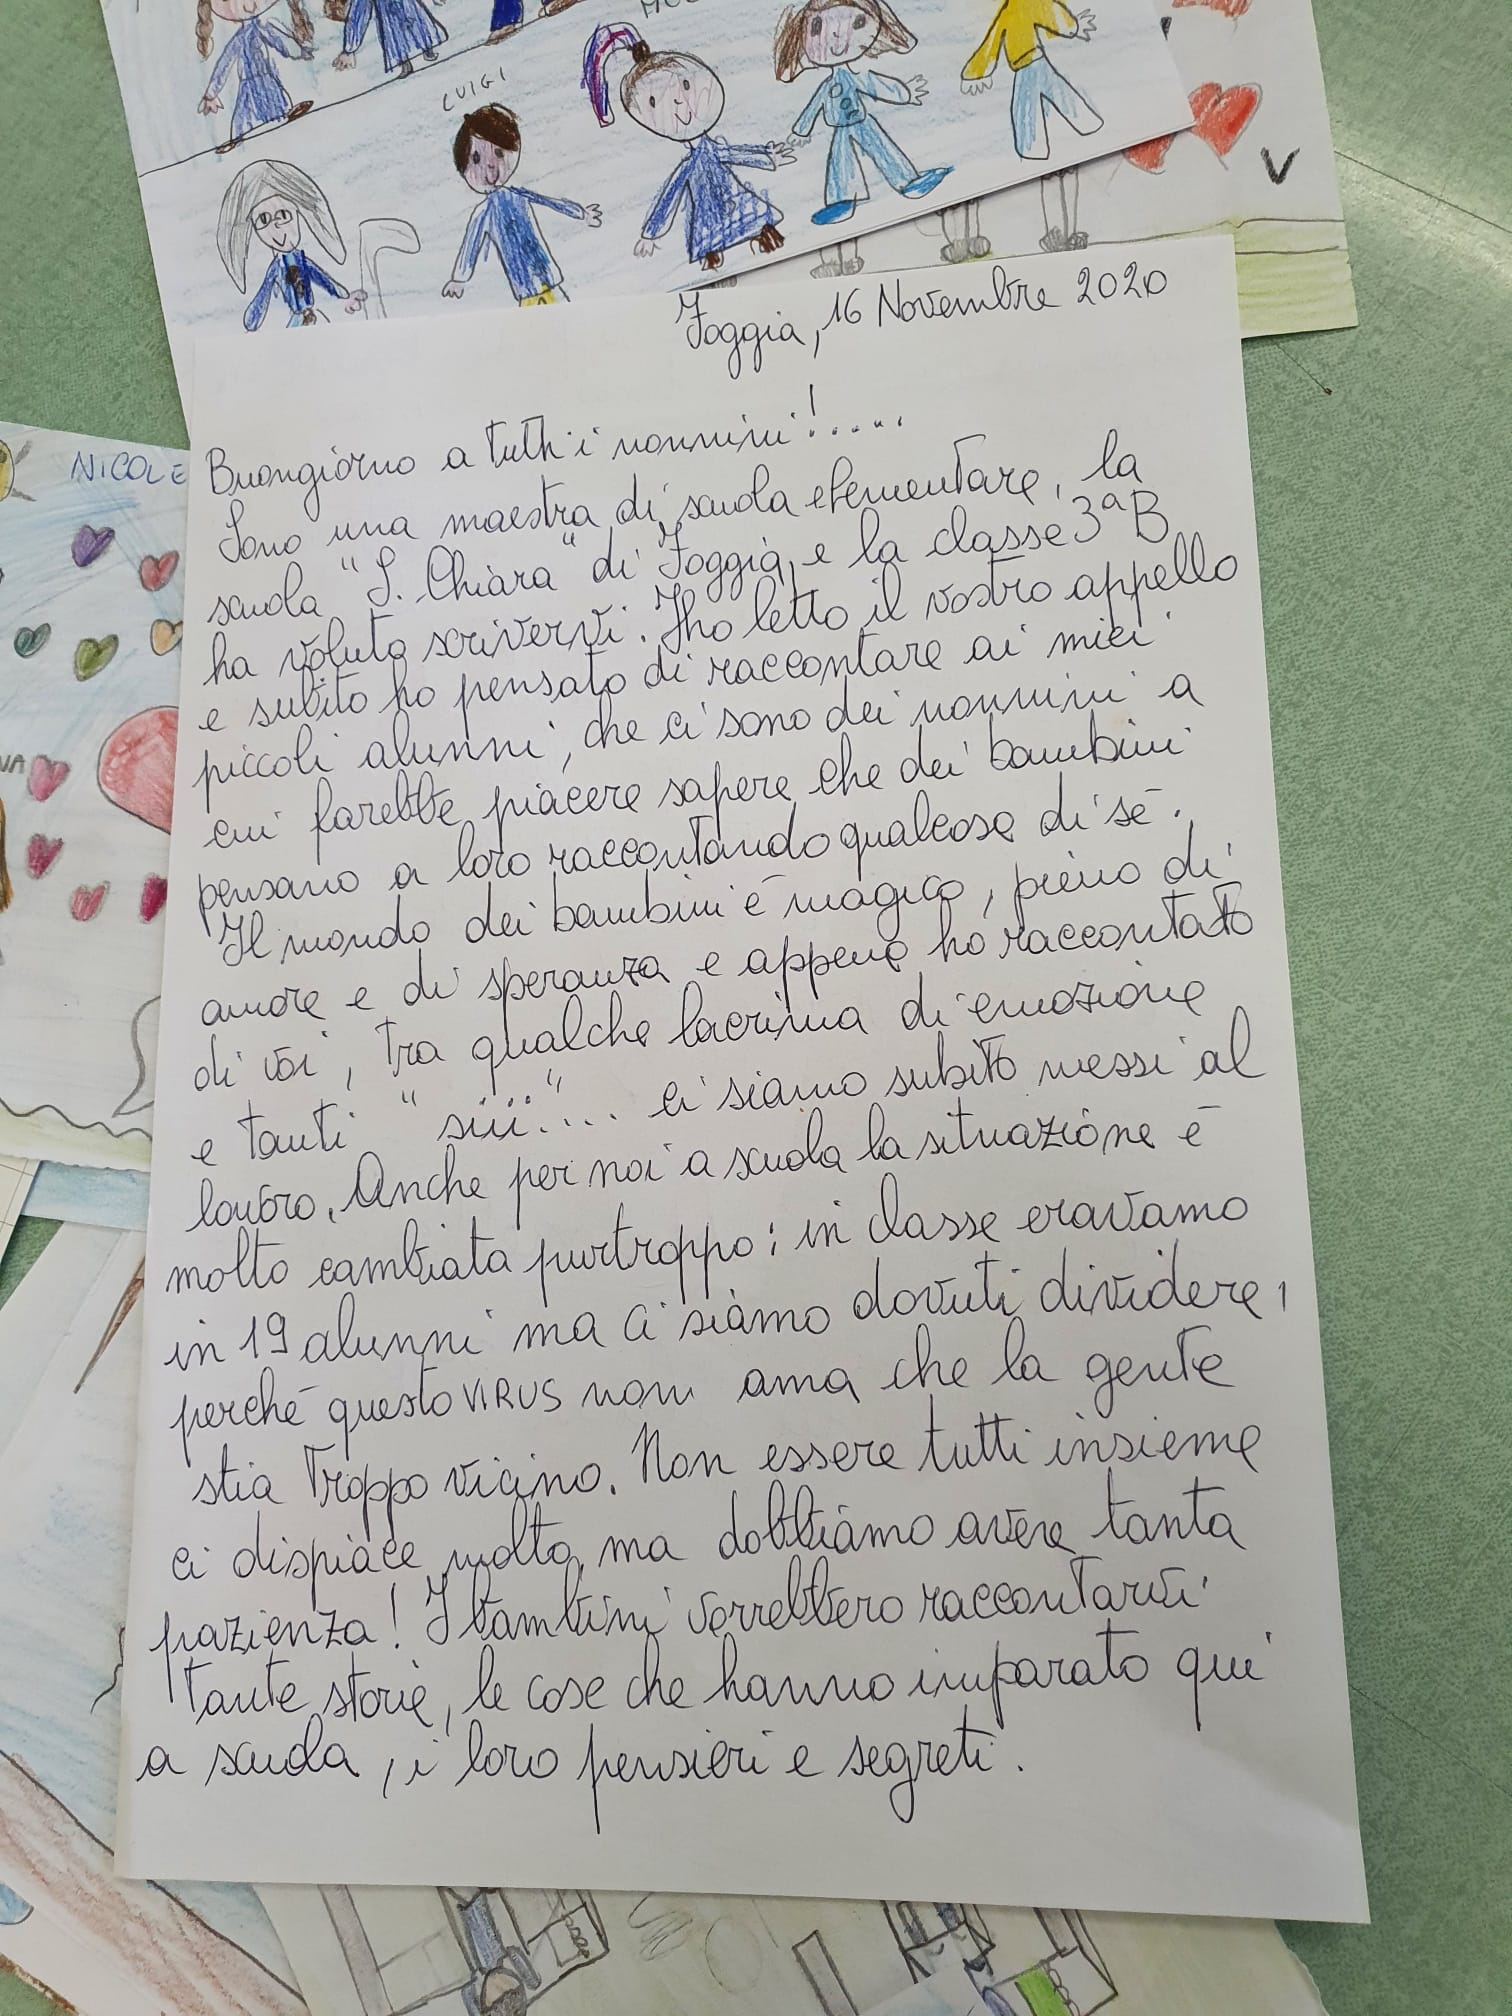 LUIGI
NICOLE
V
Foggia, 16 Novembre 2020
Buongiorno a tutti i nonnini!.....
Sono una maestra di scuola elementare, la
scuola "S. Chiara" di Foggia, e la classe 3ªB
ha voluto scrivervi. Ho letto il vostro appello
e subito ho pensato di raccontare ai miei
piccoli alunni, che ci sono dei nonnini a
cui farebbe piacere sapere che dei bambini
pensano a loro raccontando qualcosa di sé.
Il mondo dei bambini è magico, pieno di
amore e di speranza e appena ho raccontato
di voi, tra qualche lacrima di emozione
e tanti "siii"... ci siamo subito messi al
lavoro. Anche per noi a scuola la situazione è
molto cambiata purtroppo: in classe eravamo
in 19 alunni ma ci siamo dovuti dividere,
perché questo VIRUS non ama che la gente
stia troppo vicino. Non essere tutti insieme
ci dispiace molto, ma dobbiamo avere tanta
pazienza! I bambini vorrebbero raccontarvi
tante storie, le cose che hanno imparato qui
a scuola, i loro pensieri e segreti.